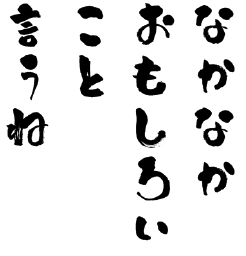 なかなか
おもしろい
こと
言うね